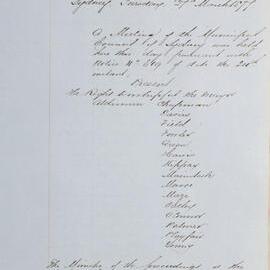 Sydney Tuesday 27th March 1877
A Meeting of the Municipal
Council of Sydney was held
here this day pursuant with
Notice No. of date the
instant.
Present
The Right Worshipful the Mayor
Aldermen Chapman
Davies
Field
Fowler
Green
Kippax
Macintosh
Moore
Meyer
O'Connor
Palmer
Playfair
The Minutes of the Proceedings at the